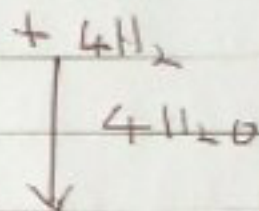 + 4H₂
4H₂O